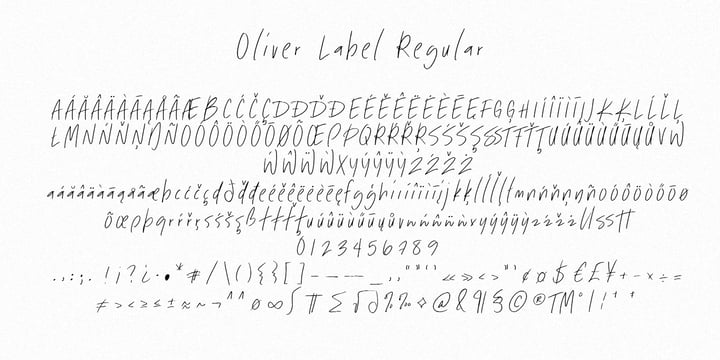 Oliver Label Regular
AÁĂÂÄÀĀĄÅÃÆBCĆČÇDÐĎĐEÉĚÊËĖÈĒĘFGĢHIÍÎÏİÌĪĮJKĶLĹĽĻ
ŁMNŃŇŅŊÑOÓÔÖÒŐŌØÕŒPÞQRŔŘŖSŚŠŞẞTŦŤŢUÚÛÜÙŰŪŲŮVW
ẂŴẄẀXYÝŶŸỲZŹŽŻ
aáăâäàāąåãæbcćčçdðďđeéěêëėèēęfgģhiíîïìīįjkķlĺľļłmnńňņŋñoóôöòőōø
õœpþqrŕřŗsśšşßtŧťţuúûüùűūųůvwẃŵẅẁxyýŷÿỳzźžż
0123456789
.,:;. !¡?¿·•*#/\(){}[]-–—_‚„“”‘’«»‹›"'¢¤$€£¥+−×÷=
≠><≥≤±≈~¬^∅∞∫∏∑√∂%‰@&¶§©®™°|¦